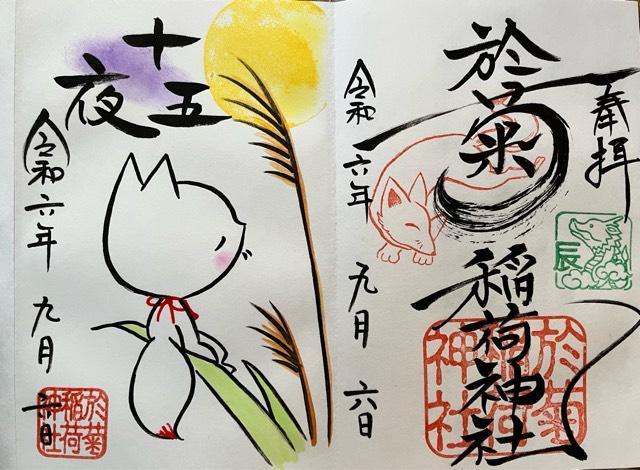 奉拝
於菊
稲荷神社
令和六年 九月 六日
辰
於菊
稲荷
神社
十五
夜
令和六年 九月 六日
於菊
稲荷
神社